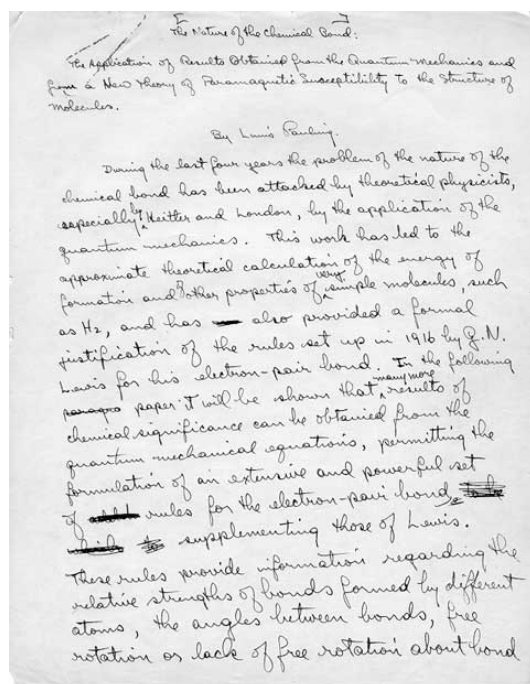 [The Nature of the Chemical Bond:]
The Application of Results Obtained from the Quantum Mechanics and
from a New Theory of Paramagnetic Susceptibility to the Structure of
Molecules.
By Linus Pauling.
During the last four years the problem of the nature of the
chemical bond has been attacked by theoretical physicists,
especially by Heitler and London, by the application of the
quantum mechanics. This work has led to the
approximate theoretical calculation of the energy of
formation and of other properties of very simple molecules, such
as H2, and has also provided a formal
justification of the rules set up in 1916 by G.N.
Lewis for his electron-pair bond. In the following
paper it will be shown that many more results of
chemical significance can be obtained from the
quantum mechanical equations, permitting the
formulation of an extensive and powerful set
of rules for the electron-pair bond
supplementing those of Lewis.
These rules provide information regarding the
relative strengths of bonds formed by different
atoms, the angles between bonds, free
rotation or lack of free rotation about bond